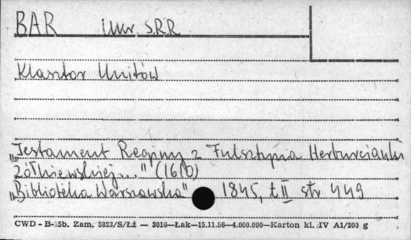 BAR imw. SRR
Klasztor Unitów
"Testament Reginy z Fulsztyna Herburcianki
Żółkiewskiej..." (1610)
"Biblioteka Warszawska" 1845, t II str 449
CWD - B-15b, Zam. 5823/S/Łż — 3016—Łak—15.11.56—4.000.000—Karton kl. IV A1/200 g